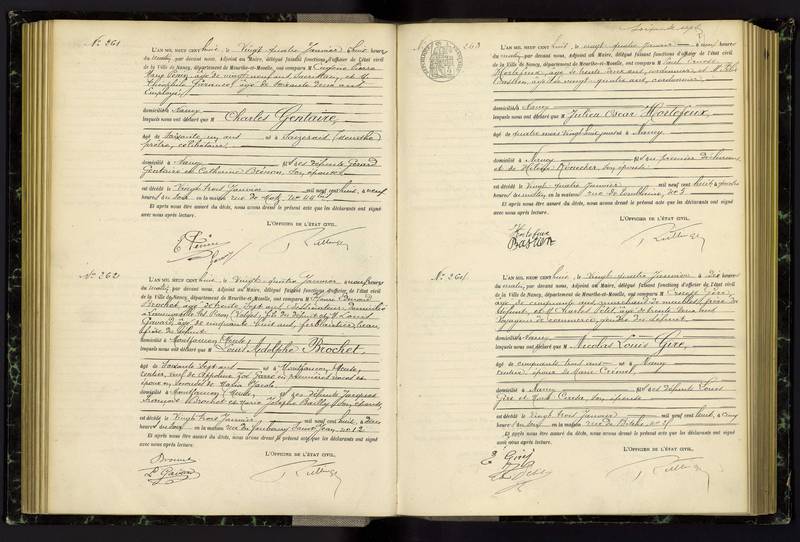 No 261
L'AN MIL NEUF CENT huit, le Vingt quatre Janvier à huit heures
du matin, par devant nous, Adjoint au Maire, délégué faisant fonctions d'officier de l'état civil
de la Ville de Nancy, département de Meurthe-et-Moselle, ont comparu M Eugène Pierre
âgé de vingt neuf ans
âgé de soixante deux ans
Employé
domiciliés Nancy
lesquels nous ont déclaré que M Charles Gentaire,
âgé de Soixante un ans né à (Meurthe)
célibataire,
domicilié à Nancy fils des défunts Gérard
Gentaire et Catherine son épouse
est décédé le Vingt trois Janvier mil neuf cent huit, à neuf
heures du soir en la maison rue de Metz No 44 bis
Et après nous être assuré du décès, nous avons dressé le présent acte que les déclarants ont signé
avec nous après lecture.
L'OFFICIER DE L'ÉTAT CIVIL,
No 262
L'AN MIL NEUF CENT huit, le Vingt quatre Janvier à neuf heures
du matin, par devant nous, Adjoint au Maire, délégué faisant fonctions d'officier de l'état civil
de la Ville de Nancy, département de Meurthe-et-Moselle, ont comparu M Henri Edouard
Brochet âgé de trente sept ans dessinateur domicilié
(Vosges), fils du défunt et M Louis
Gavard âgé de cinquante huit ans, ferblantier, beau
frère du défunt
domiciliés Montfaucon (Meuse)
lesquels nous ont déclaré que M Louis Adolphe Brochet,
âgé de Soixante sept ans né à Montfaucon, Meuse,
rentier, veuf de en premières noces et
époux en secondes de Marie
domicilié à Montfaucon (Meuse) fils des défunts Jacques
François Brochet et Marie Josèphe Bailly son épouse,
est décédé le Vingt trois Janvier mil neuf cent huit, à deux
heures du soir en la maison rue du faubourg Saint Jean No 12
Et après nous être assuré du décès, nous avons dressé le présent acte que les déclarants ont signé
avec nous après lecture.
L'OFFICIER DE L'ÉTAT CIVIL,
L. Gavard
263
L'AN MIL NEUF CENT huit, le vingt quatre Janvier à neuf heures
du matin, par devant nous, Adjoint au Maire, délégué faisant fonctions d'officier de l'état civil
de la Ville de Nancy, département de Meurthe-et-Moselle, ont comparu M Paul
Hortefeux, âgé de trente deux ans, cordonnier, et M
Bastien âgé de vingt quatre ans, cordonnier,
domiciliés Nancy
lesquels nous ont déclaré que M Julien Oscar Hortefeux,
âgé de quatre mois vingt huit jours né à Nancy
domicilié à Nancy fils du premier déclarant
et de son épouse
est décédé le vingt quatre Janvier mil neuf cent huit à
heures du matin, en la maison rue No 3
Et après nous être assuré du décès, nous avons dressé le présent acte que les déclarants ont signé
avec nous après lecture.
L'OFFICIER DE L'ÉTAT CIVIL,
Hortefeux
Bastien
No 264
L'AN MIL NEUF CENT huit, le Vingt quatre Janvier à dix heures
du matin, par devant nous, Adjoint au Maire, délégué faisant fonctions d'officier de l'état civil
de la Ville de Nancy, département de Meurthe-et-Moselle, ont comparu M Giré,
âgé de cinquante ans marchand de meubles, frère du
défunt, et M Charles Petit âgé de trente deux ans
voyageur de commerce, gendre du défunt
domiciliés Nancy
lesquels nous ont déclaré que M Nicolas Louis Giré,
âgé de cinquante trois ans né à Nancy
rentier, époux de Marie
domicilié à Nancy fils des défunts Louis
Giré et son épouse
est décédé le vingt trois Janvier mil neuf cent huit, à cinq
heures du soir en la maison rue de
Et après nous être assuré du décès, nous avons dressé le présent acte que les déclarants ont signé
avec nous après lecture.
L'OFFICIER DE L'ÉTAT CIVIL,
Giré